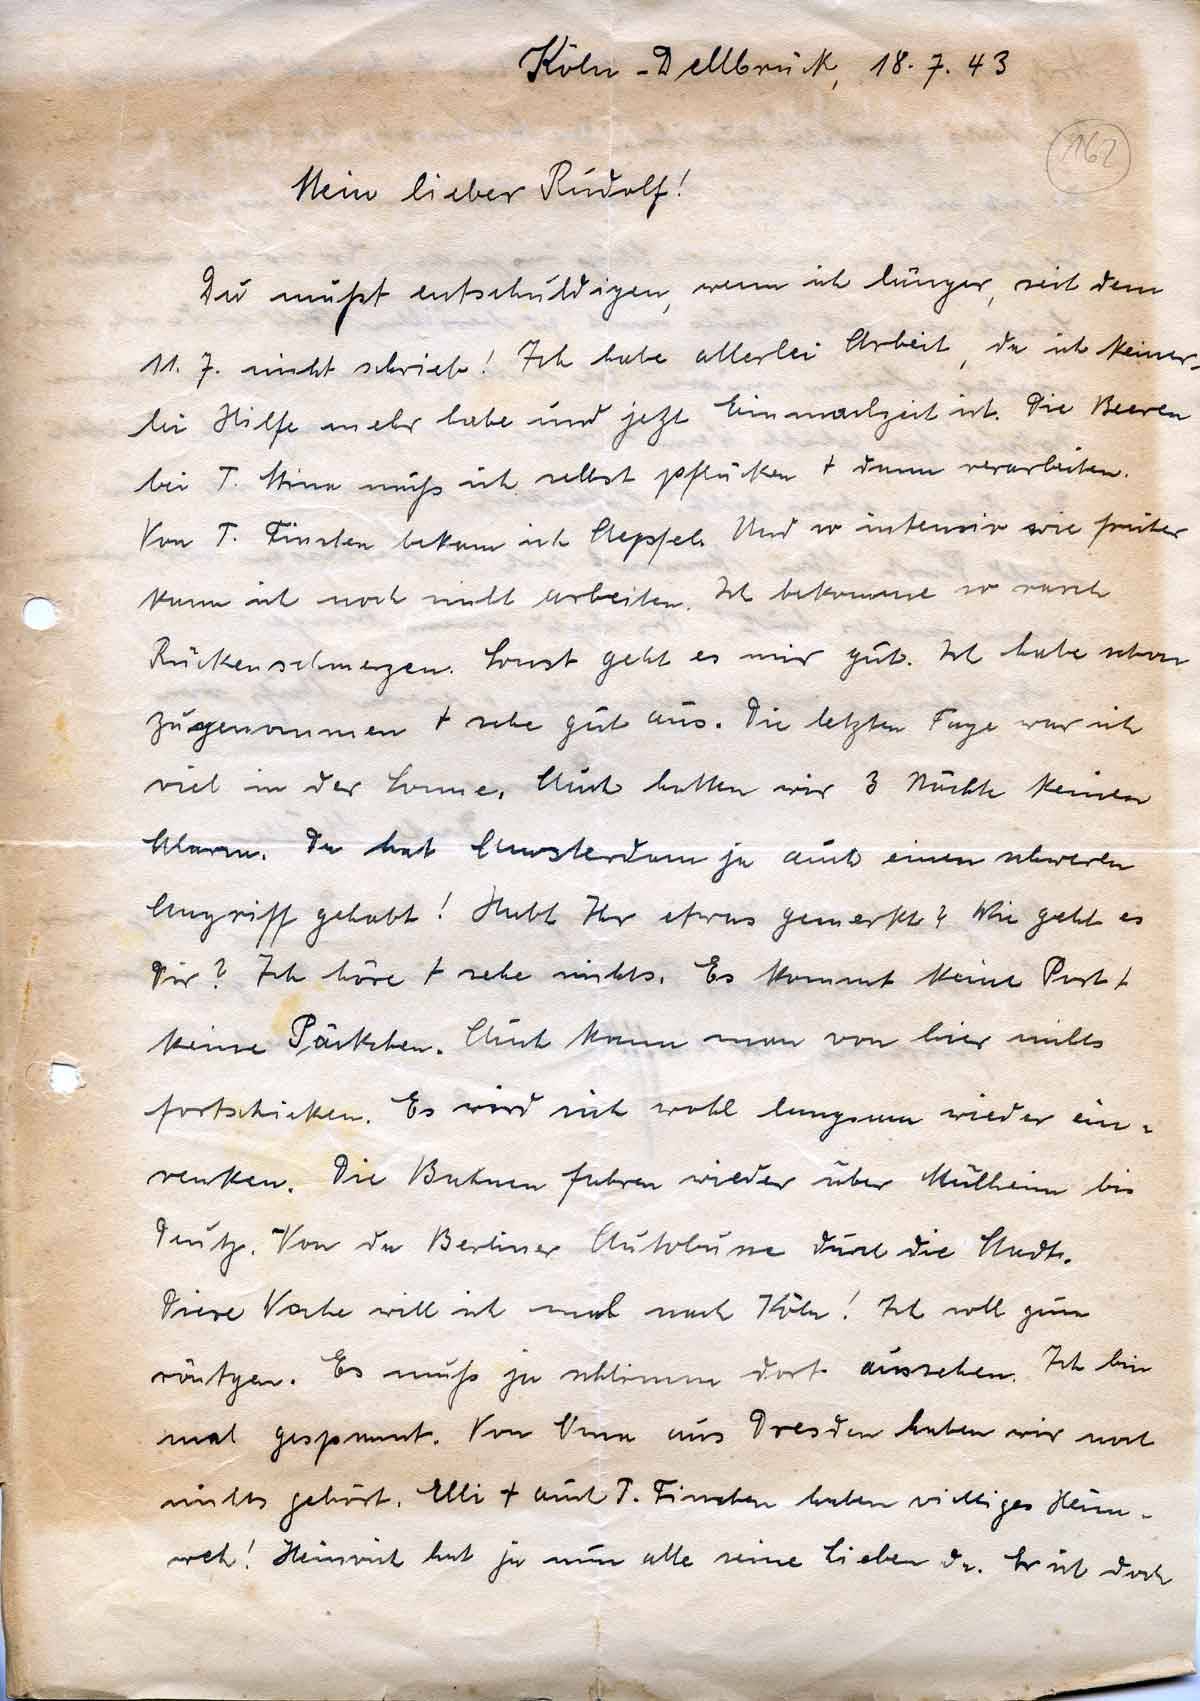 Köln-Dellbrück, 18.7.43
162
Mein lieber Rudolf!
Du mußt entschuldigen, wenn ich länger, seit dem
11. 7. nicht schrieb! Ich habe allerlei Arbeit, da ich keiner-
lei Hilfe mehr habe und jetzt Einmachzeit ist. Die Beeren
bei T. Mina muß ich selbst pflücken + dann verarbeiten.
Von T. Finchen bekam ich Aepfel. Und so intensiv wie früher
kann ich noch nicht arbeiten. Ich bekomme so rasch
Rückenschmerzen. Sonst geht es mir gut. Ich habe schon
zugenommen + sehe gut aus. Die letzten Tage war ich
viel in der Sonne. Auch hatten wir 3 Nächte keinen
Alarm. Da hat Amsterdam ja auch einen schweren
Angriff gehabt! Habt Ihr etwas gemerkt? Wie geht es
Dir? Ich höre + sehe nichts. Es kommt keine Post +
keine Päckchen. Auch kann man von hier nichts
fortschicken. Es wird sich wohl langsam wieder ein-
renken. Die Bahnen fahren wieder über Mülheim bis
Deutz. Von da Berliner Autobusse durch die Stadt.
Diese Woche will ich mal nach Köln! Ich soll zum
röntgen. Es muß ja schlimm dort aussehen. Ich bin
mal gespannt. Von aus Dresden haben wir noch
nichts gehört. Elli + auch T. Finchen haben richtiges Heim-
weh! Heinrich hat ja nun alle seine Lieben da. Er ist doch